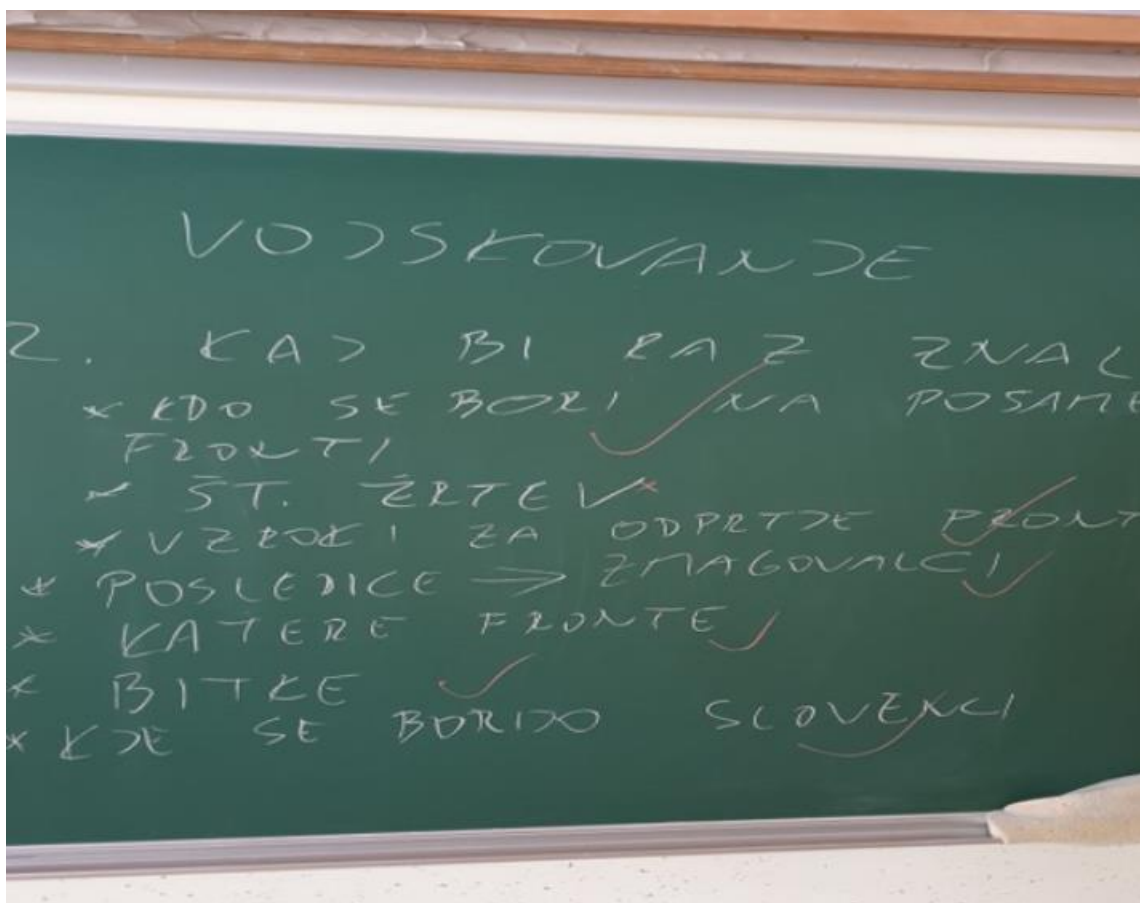 VOJSKOVANJE
2. KAJ BI RAZ ZNAL
* KDO SE BORI NA POSAME
FRONTI
* ŠT. ŽRTEV
* VZROKI ZA ODPRTJE FRONT
* POSLEDICE → ZMAGOVALCI
* KATERE FRONTE
* BITKE
* KJE SE BORIJO SLOVENCI